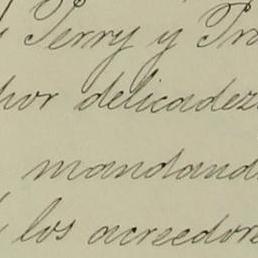 y Perry y Pra
por delicadez
mandand
los acreedore